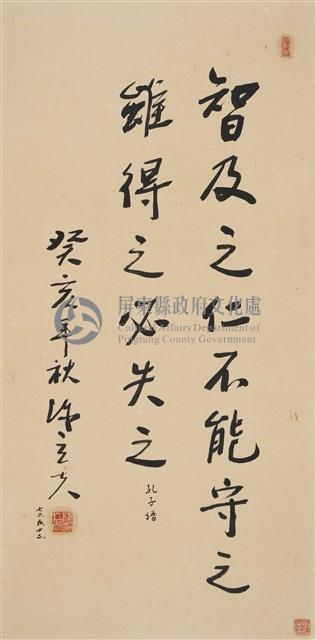 智及之仁不能守之
雖得之必失之
孔子語
癸亥年秋 陳立夫
屏東縣政府文化處
Cultural Affairs Department of
Pingtung County Government